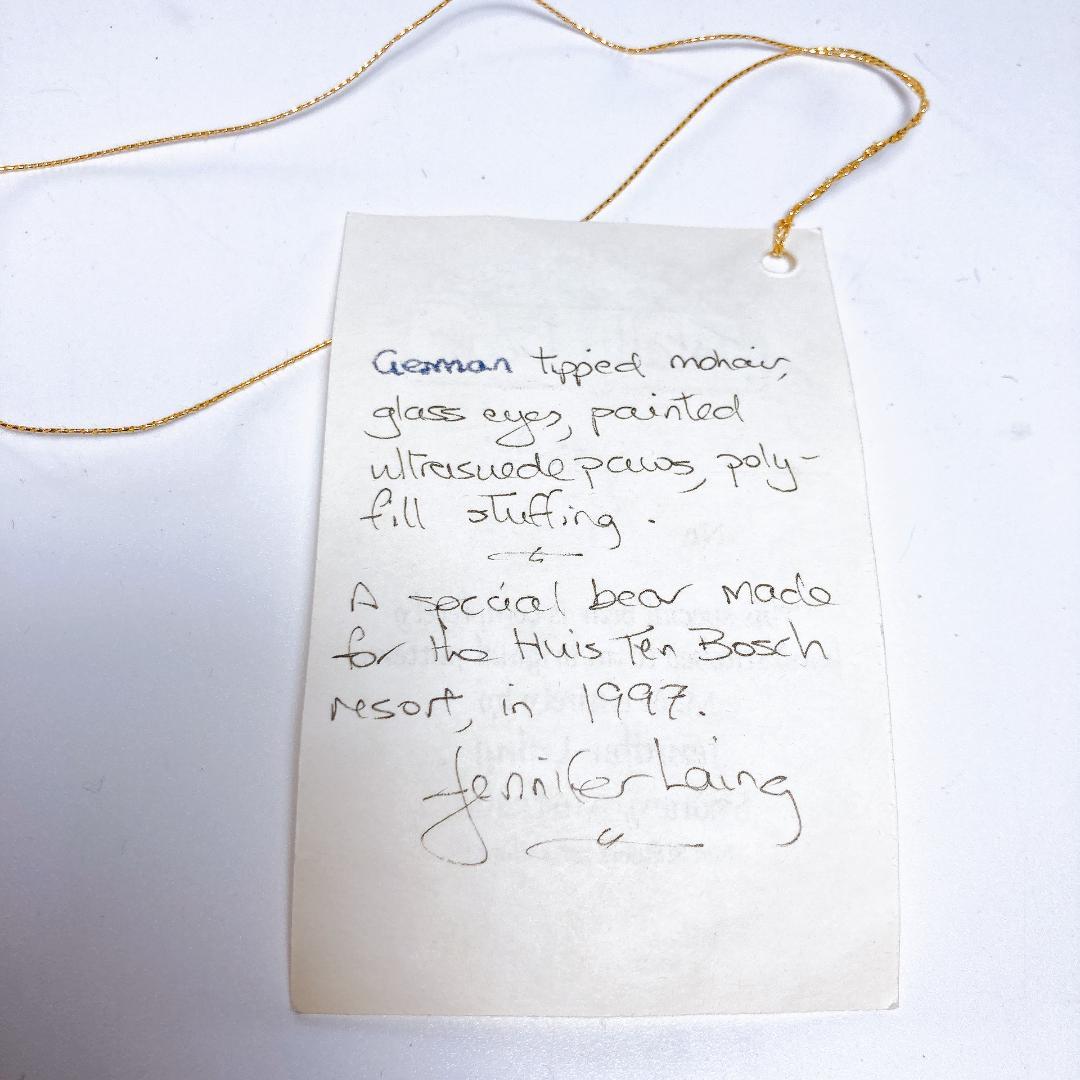 German tipped mohair,
glass eyes, painted
ultrasuede paws, poly-
fill stuffing.
A special bear made
for the Huis Ten Bosch
resort, in 1997.
Jennifer Laing